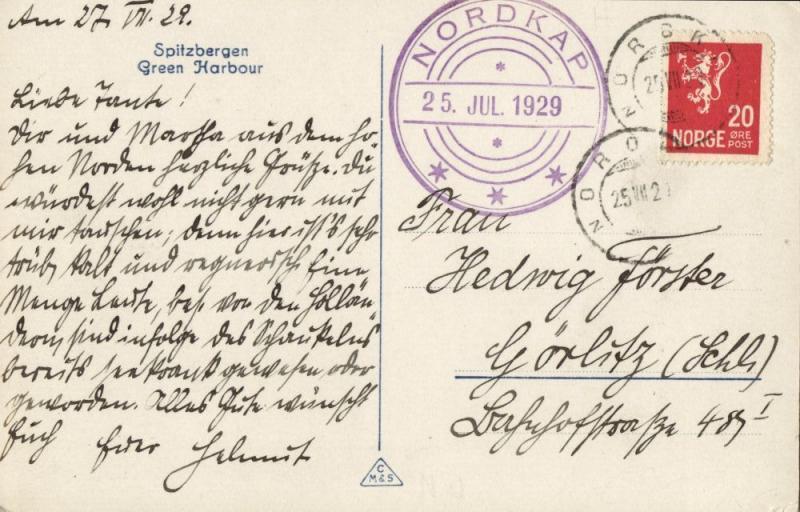 Am 27. VII. 29.
Spitzbergen
Green Harbour
Liebe Tante!
Dir und Martha aus dem ho-
hen Norden herzliche Grüße. Du
würdest wohl nicht gern mit
mir tauschen; denn hier ist's sehr
trüb, kalt und regnerisch. Eine
Menge Leute, bes. von den Hollän-
dern, sind infolge des Schaukelns
bereits seekrank gewesen oder
geworden. Alles Gute wünscht
Euch Euer Helmut
NORDKAP
25. JUL. 1929
NORGE
20
ØRE
POST
25 VII 2
Frau
Hedwig Förster
Görlitz (Schl.)
Bahnhofstraße 48 I
C
M&S